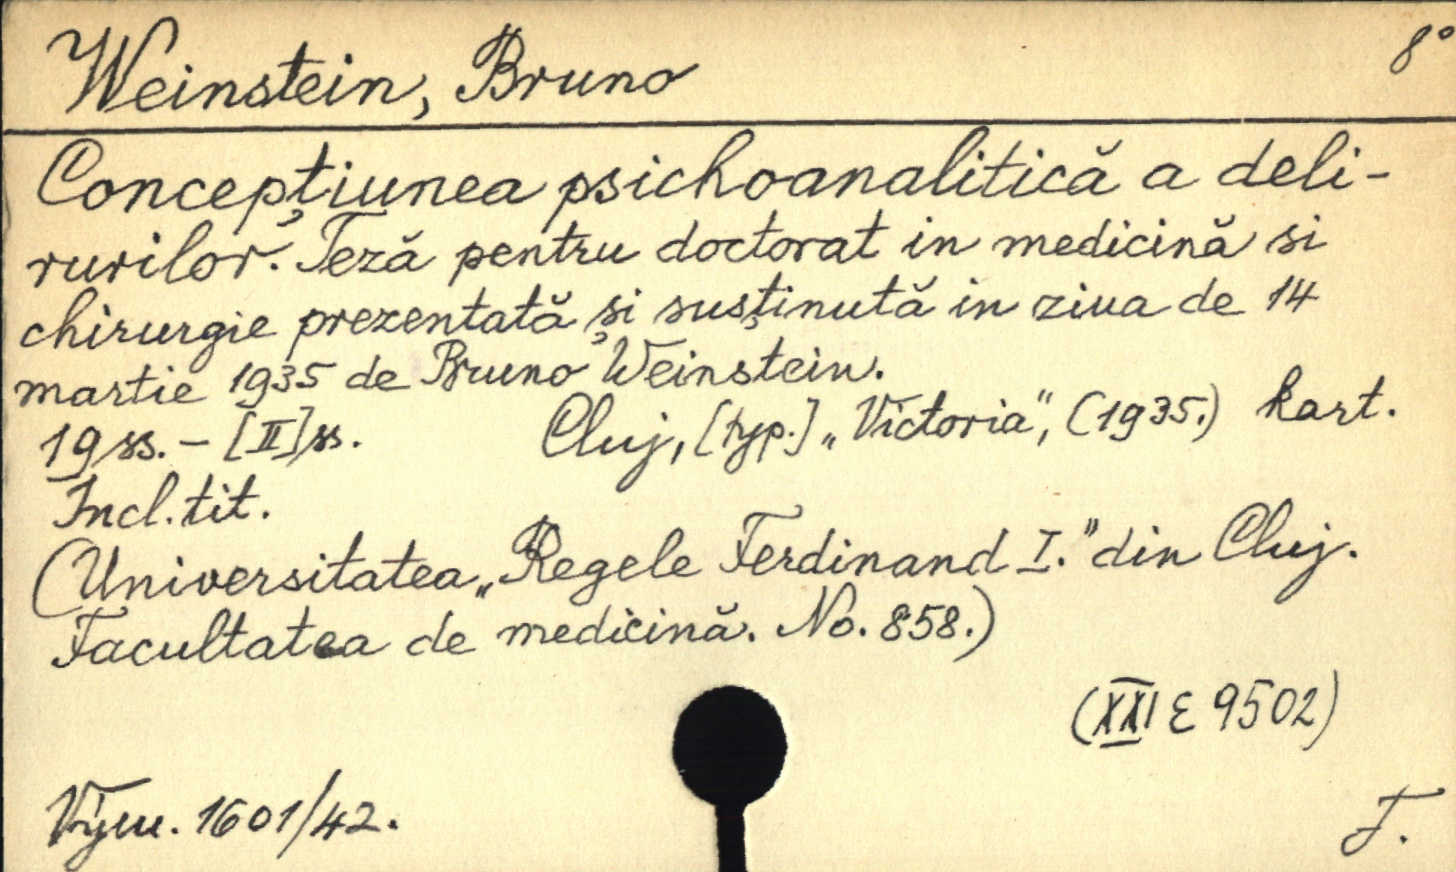 Weinstein, Bruno 8°
Concepțiunea psichoanalitică a deli-
rurilor. Teză pentru doctorat in medicină si
chirurgie prezentată și susținută in ziua de 14
martie 1935 de Bruno Weinstein.
19 ss. - [II] ss. Cluj, [typ.] „Victoria", (1935.) kart.
Incl. tit.
(Universitatea „Regele Ferdinand I." din Cluj.
Facultatea de medicină. No. 858.)
(XXI E 9502)
Vým. 1601/42. F.